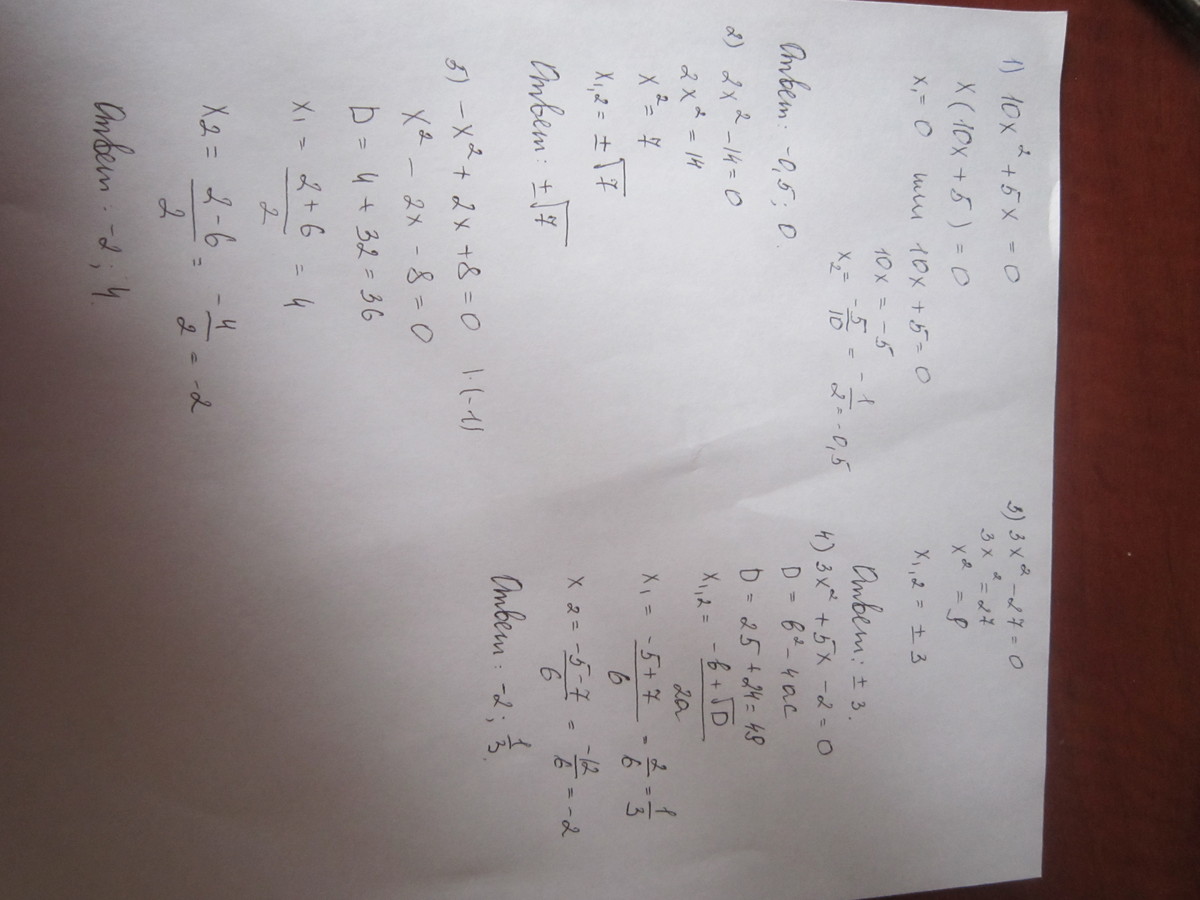 1) 10x² + 5x = 0
x(10x + 5) = 0
x₁ = 0 или 10x + 5 = 0
10x = -5
x₂ = -5/10 = -1/2 = -0,5
Ответ: -0,5; 0.
2) 2x² - 14 = 0
2x² = 14
x² = 7
x₁,₂ = ±√7
Ответ: ±√7
5) -x² + 2x + 8 = 0 |·(-1)
x² - 2x - 8 = 0
D = 4 + 32 = 36
x₁ = (2+6)/2 = 4
x2 = (2-6)/2 = -4/2 = -2
Ответ: -2; 4.
3) 3x² - 27 = 0
3x² = 27
x² = 9
x₁,₂ = ±3
Ответ: ±3.
4) 3x² + 5x - 2 = 0
D = b² - 4ac
D = 25 + 24 = 49
x₁,₂ = (-b + √D)/2a
x₁ = (-5+7)/6 = 2/6 = 1/3
x2 = (-5-7)/6 = -12/6 = -2
Ответ: -2; 1/3.